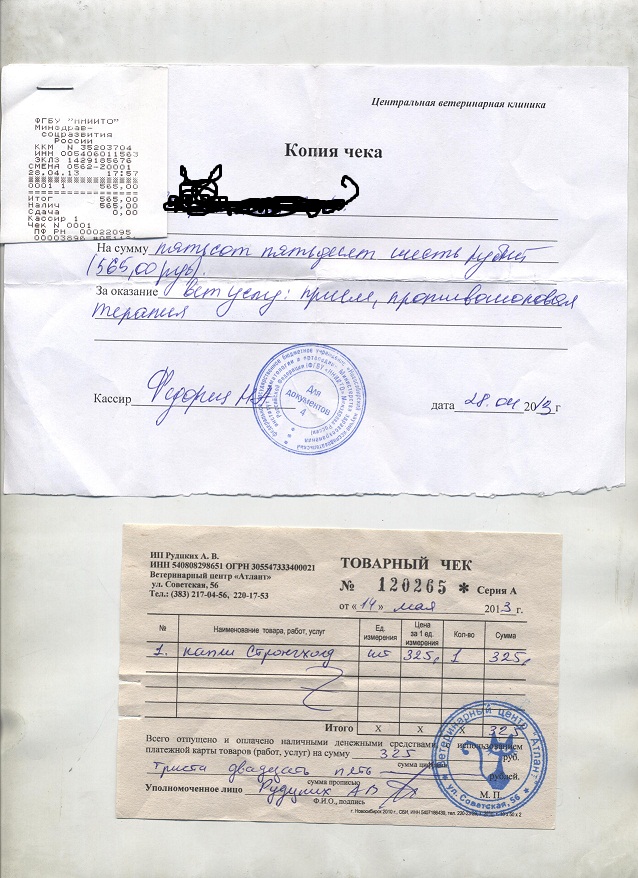 ФГБУ "ННИИТО"
Минздрав-
соцразвития
России
ККМ N 35203704
ИНН 005406011563
ЭКЛЗ 1429185676
СМЕНА 0562-20001
28.04.13 17:57
0001 1 565,00
ИТОГ 565.00
Налич 565,00
Сдача 0,00
Кассир 1
Чек N 0001
ПФ РН 00022095
Центральная ветеринарная клиника
Копия чека
На сумму пятьсот пятьдесят шесть рублей
(565,00 руб).
За оказание вет услуг: прием, противошоковая
терапия
Для
документов
4
Кассир
дата 28.04 2013 г
ИП Рудких А. В.
ИНН 540808298651 ОГРН 305547333400021
Ветеринарный центр «Атлант»
ул. Советская, 56
Тел.: (383) 217-04-56, 220-17-53
ТОВАРНЫЙ ЧЕК
№ 120265 * Серия А
от «14» мая 2013 г.
№ Наименование товара, работ, услуг Ед. измерения Цена за 1 ед. измерения Кол-во Сумма
1. капли Стронгхолд шт 325, 1 325,
Итого X X X 325
Всего отпущено и оплачено наличными денежными средствами, с использованием
платежной карты товаров (работ, услуг) на сумму 325 руб.
сумма цифрами
триста двадцать пять рублей.
сумма прописью
Уполномоченное лицо М. П.
Ф.И.О., подпись
Ветеринарный центр "Атлант"
* ул. Советская, 56 *